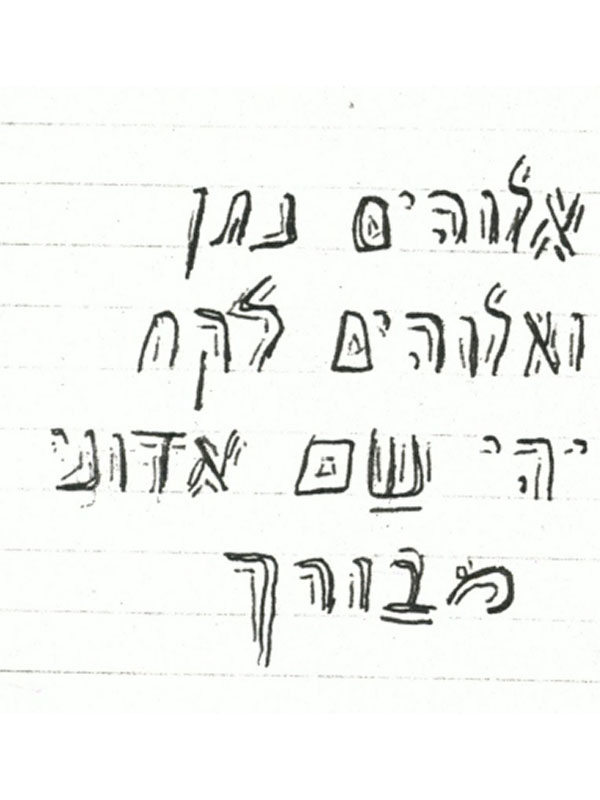 אלוהים נתן
ואלוהים לקח
יהי שם אדוני
מבורך